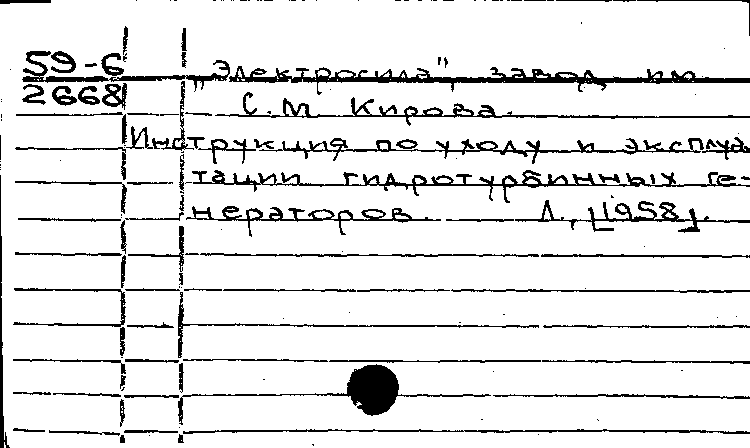 59-6
2668
„Электросила", завод им
С.М Кирова.
Инструкция по уходу и эксплуа
тации гидротурбинных ге-
нераторов. Л., [1958].